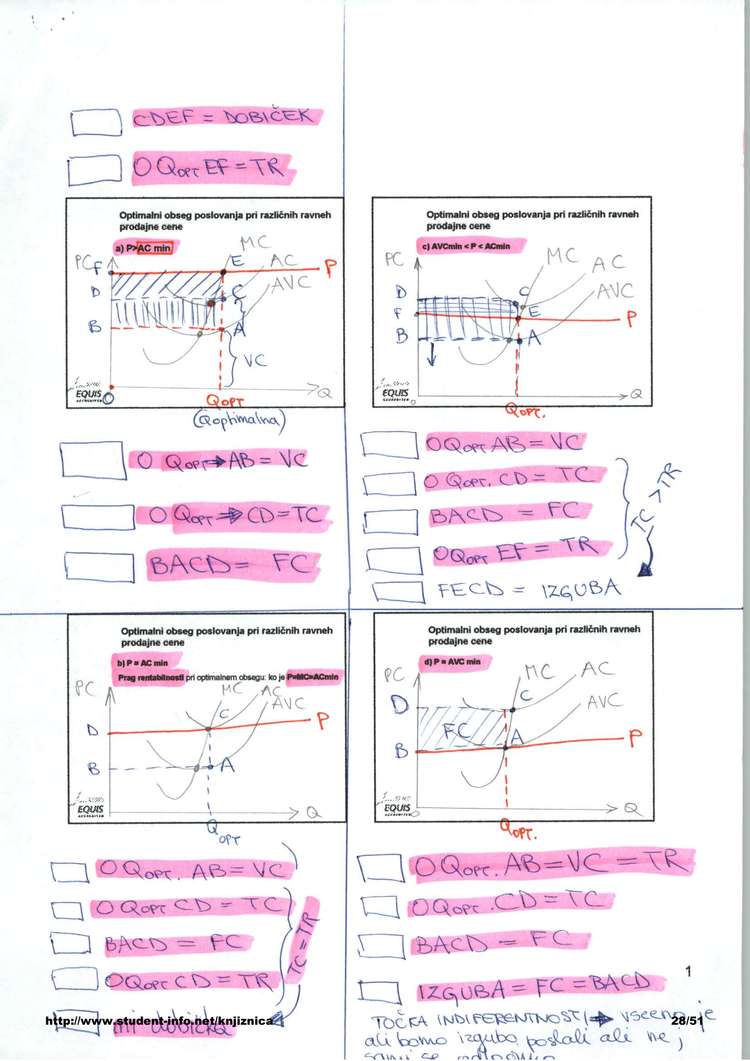 CDEF = DOBIČEK
O QOPT EF = TR
Optimalni obseg poslovanja pri različnih ravneh
prodajne cene
a) P>AC min
PC
MC
AC
AVC
F
E
P
D
C
B
A
VC
O
Q
QOPT
(Qoptimalna)
EQUIS
ACCREDITED
O QOPT → AB = VC
O QOPT ⇒ CD = TC
BACD = FC
Optimalni obseg poslovanja pri različnih ravneh
prodajne cene
c) AVCmin < P < ACmin
PC
MC
AC
AVC
D
C
F
E
P
B
A
O
Q
QOPT.
EQUIS
ACCREDITED
O QOPT AB = VC
O QOPT. CD = TC
BACD = FC
O QOPT EF = TR
TC > TR
FECD = IZGUBA
Optimalni obseg poslovanja pri različnih ravneh
prodajne cene
b) P = AC min
Prag rentabilnosti pri optimalnem obsegu: ko je P=MC=ACmin
PC
MC
AC
AVC
C
P
D
B
A
Q
QOPT
EQUIS
ACCREDITED
O QOPT. AB = VC
O QOPT CD = TC
BACD = FC
O QOPT CD = TR
TC = TR
ni dobička
Optimalni obseg poslovanja pri različnih ravneh
prodajne cene
d) P = AVC min
PC
MC
AC
AVC
D
C
FC
B
A
P
O
Q
QOPT.
EQUIS
ACCREDITED
O QOPT. AB = VC = TR
O QOPT. CD = TC
BACD = FC
IZGUBA = FC = BACD
1
TOČKA INDIFERENTNOSTI ⇒ vseeno je
ali bomo izgubo poslali ali ne,
http://www.student-info.net/knjiznica
28/51